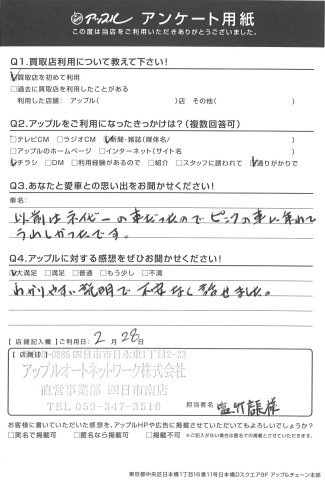 アップル アンケート用紙
この度は当店をご利用いただきありがとうございました。
Q1.買取店利用について教えて下さい!
☑買取店を初めて利用
□過去に買取店を利用したことがある
利用した店舗: アップル( )店 その他( )
Q2.アップルをご利用になったきっかけは?(複数回答可)
□テレビCM □ラジオCM ☑新聞・雑誌(媒体名/ )
□アップルのホームページ □インターネット(サイト名 )
☑チラシ □DM □利用経験があるので □紹介 □スタッフに誘われて ☑通りがかりで
Q3.あなたと愛車との思い出をお聞かせください!
車名:
以前はネイビーの車だったのでピンクの車に乗れて
うれしかったです。
Q4.アップルに対する感想をぜひお聞かせください!
☑大満足 □満足 □普通 □もう少し □不満
わかりやすい説明で不安なく話せました。
【店舗記入欄】ご利用日: 2月28日
【店舗印】
0886 四日市市日永東1丁目2-23
アップルオートネットワーク株式会社
直営事業部 四日市南店
TEL 059-347-3516
担当者名 様
お客様に書いていただいた感想を、アップルHPや広告に掲載させていただいてもよろしいでしょうか?
□実名で掲載可 □匿名なら掲載可 □掲載不可 ※ご記入がない場合は匿名での掲載とさせていただきます。
東京都中央区日本橋1丁目16番11号日本橋DスクエアF アップルチェーン本部